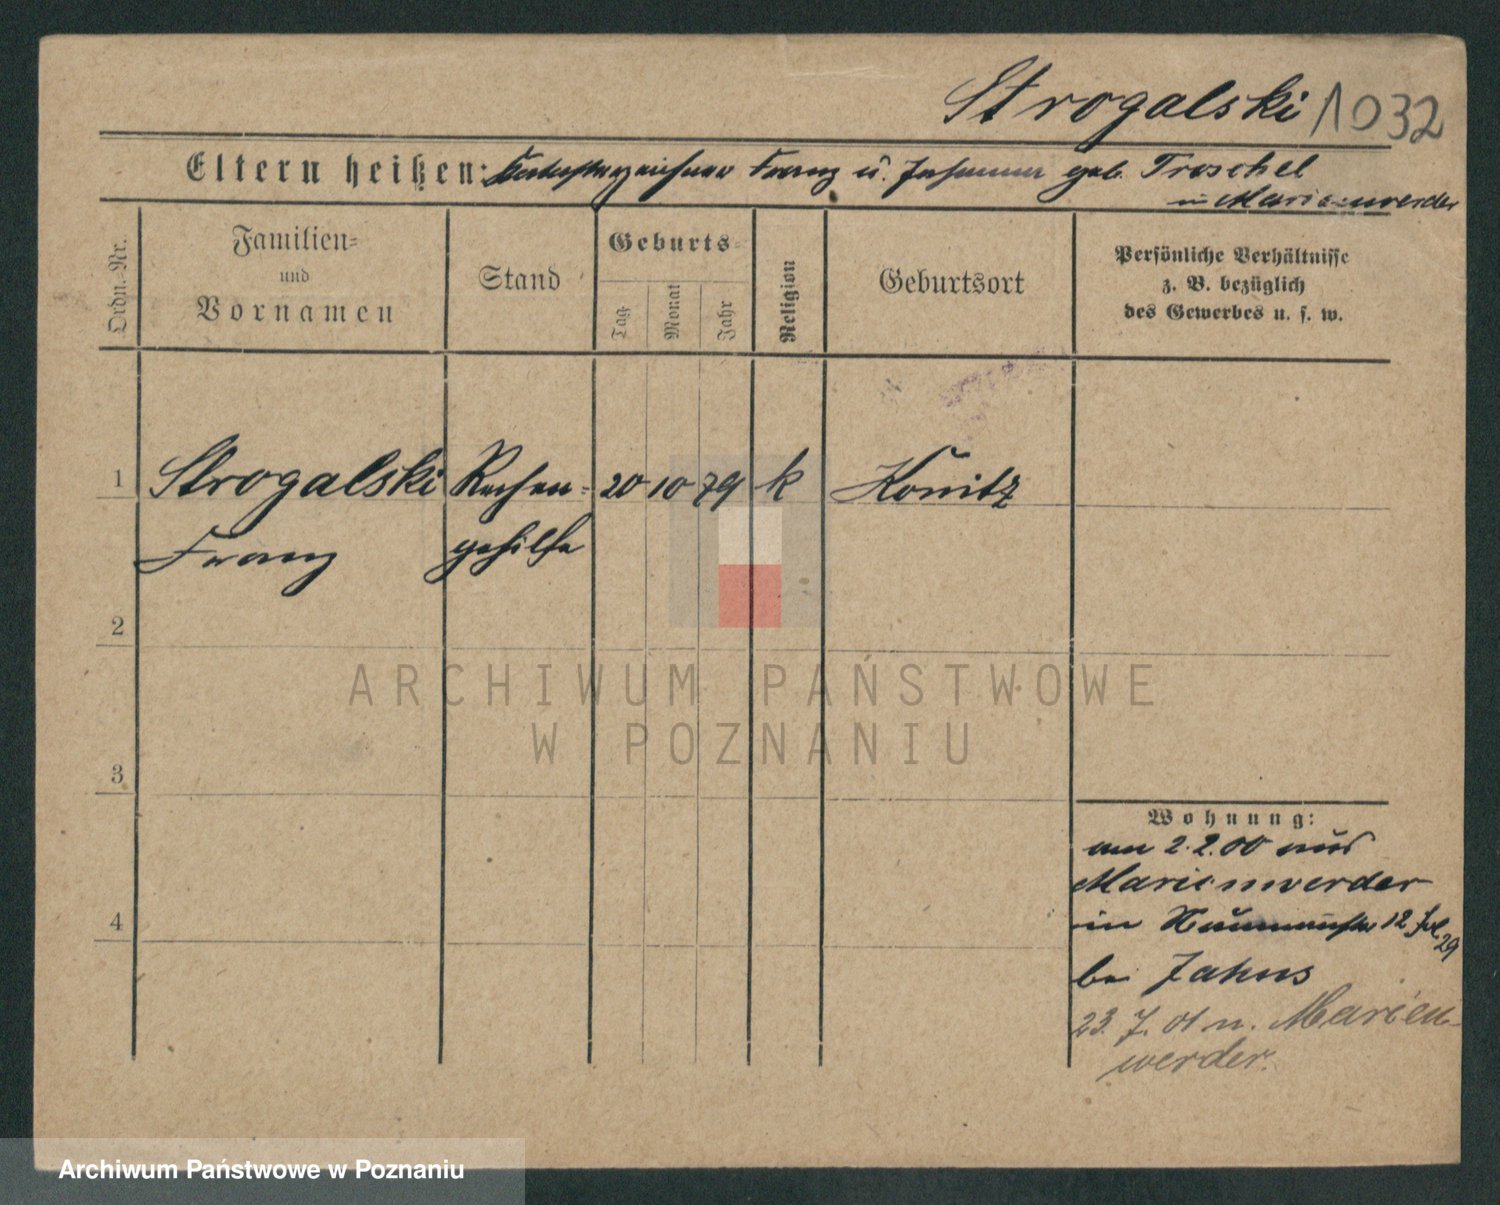 Strogalski 1032
Eltern heißen: Katasterzeichner Franz u. Johanna geb. Troschel
in Marienwerder
Ordn.-Nr.
Familien-
und
Vornamen
Stand
Geburts-
Tag
Monat
Jahr
Religion
Geburtsort
Persönliche Verhältnisse
z. B. bezüglich
des Gewerbes u. s. w.
1 Strogalski Rechen- 20 10 79 k Konitz
Franz gehilfe
2
ARCHIWUM PAŃSTWOWE
W POZNANIU
3
Wohnung:
am 2.2.00 aus
Marienwerder
4
in Naumannstr 12
29
bei Jahns
23. 7. 01 n. Marien-
werder.
Archiwum Państwowe w Poznaniu